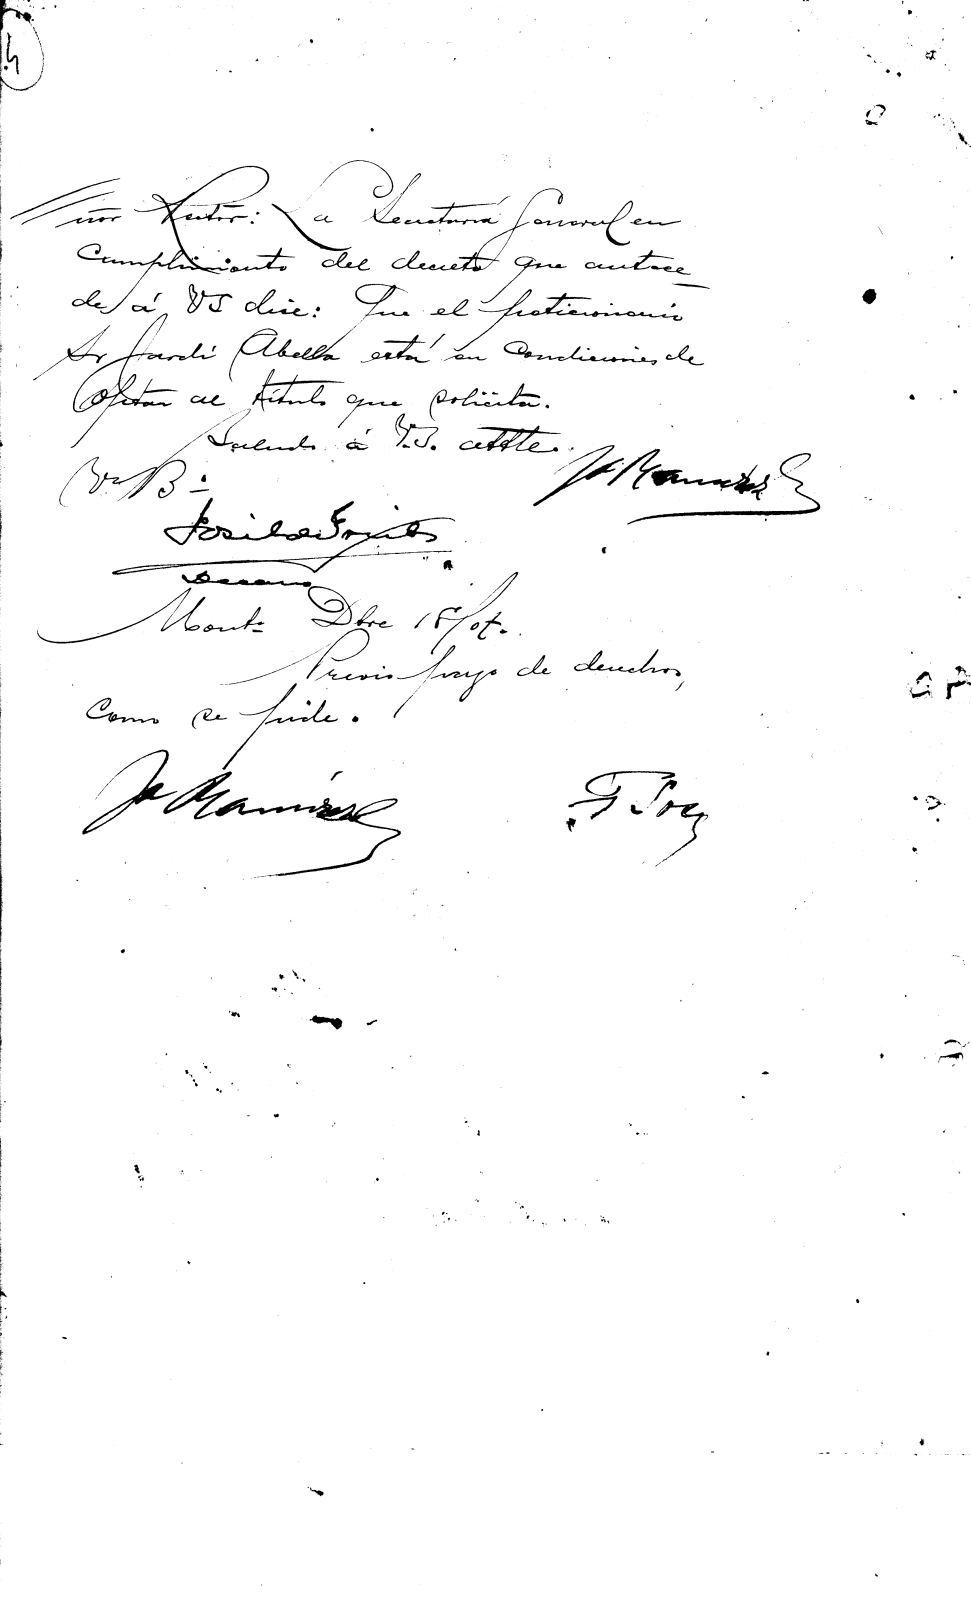 Señor Rector: La Secretaría General en
cumplimiento del decreto que antece
de á VS dice: Que el peticionario
Sr Jardi Abella está en condiciones de
optar al título que solicita.
Saludo á V.S. attte.
Vº Bº
Decano
Montº Dbre 18/07.
Previo pago de derechos,
como se pide.
Ramírez